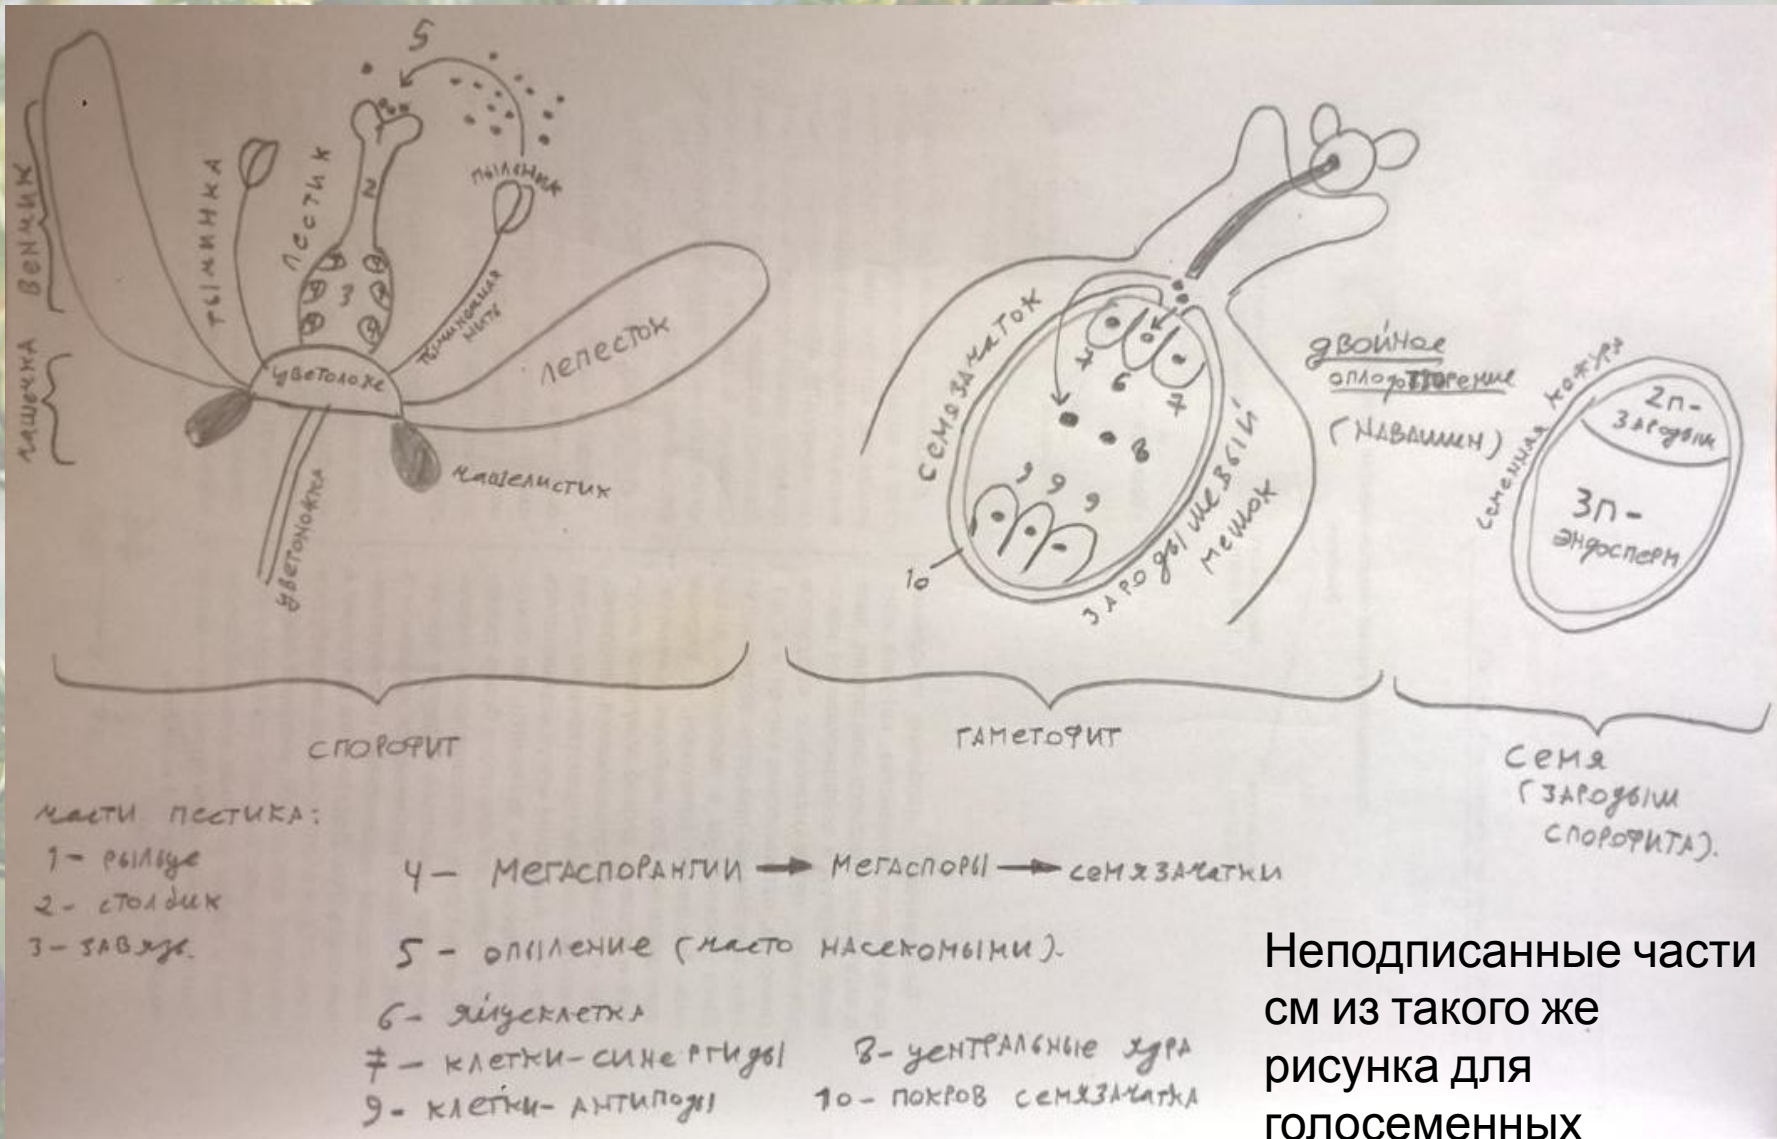 5
ВЕНЧИК
ЧАШЕЧКА
ТЫЧИНКА
ПЕСТИК
1
2
3
4
ПЫЛЬНИК
ТЫЧИНОЧНАЯ
НИТЬ
ЛЕПЕСТОК
ЦВЕТОЛОЖЕ
ЧАШЕЛИСТИК
ЦВЕТОНОЖКА
СПОРОФИТ
СЕМЯЗАЧАТОК
7
6
7
8
9
9
9
10
ЗАРОДЫШЕВЫЙ
МЕШОК
ДВОЙНОЕ
ОПЛОДОТВОРЕНИЕ
(НАВАШИН)
ГАМЕТОФИТ
СЕМЕННАЯ КОЖУРА
2n-
ЗАРОДЫШ
3n-
ЭНДОСПЕРМ
СЕМЯ
(ЗАРОДЫШ
СПОРОФИТА).
ЧАСТИ ПЕСТИКА:
1- РЫЛЬЦЕ
2- СТОЛБИК
3- ЗАВЯЗЬ.
4- МЕГАСПОРАНГИИ → МЕГАСПОРЫ → СЕМЯЗАЧАТКИ
5- ОПЫЛЕНИЕ (ЧАСТО НАСЕКОМЫМИ).
6- ЯЙЦЕКЛЕТКА
7- КЛЕТКИ-СИНЕРГИДЫ 8- ЦЕНТРАЛЬНЫЕ ЯДРА
9- КЛЕТКИ- АНТИПОДЫ 10- ПОКРОВ СЕМЯЗАЧАТКА
Неподписанные части
см из такого же
рисунка для
голосеменных